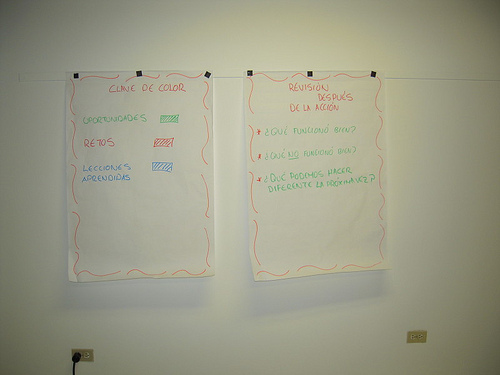 CLAVE DE COLOR
OPORTUNIDADES
RETOS
LECCIONES
APRENDIDAS
REVISIÓN
DESPUÉS
DE LA ACCIÓN
* ¿QUÉ FUNCIONÓ BIEN?
* ¿QUÉ NO FUNCIONÓ BIEN?
* ¿QUÉ PODEMOS HACER
DIFERENTE LA PRÓXIMA VEZ?